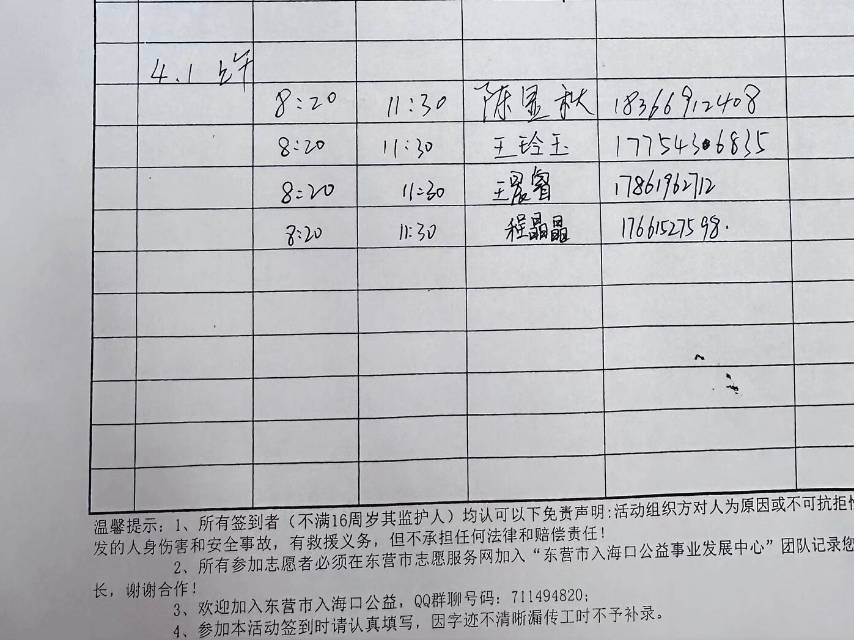 4.1 上午
8:20 11:30 陈显秋 18366912408
8:20 11:30 王玲玉 177543 6835
8:20 11:30 王晨睿 17861962712
8:20 11:30 程晶晶 17661527598.
温馨提示:1、所有签到者（不满16周岁其监护人）均认可以下免责声明:活动组织方对人为原因或不可抗拒
发的人身伤害和安全事故，有救援义务，但不承担任何法律和赔偿责任！
2、所有参加志愿者必须在东营市志愿服务网加入“东营市入海口公益事业发展中心”团队记录
长，谢谢合作！
3、欢迎加入东营市入海口公益，QQ群聊号码：711494820；
4、参加本活动签到时请认真填写，因字迹不清晰漏传工时不予补录。